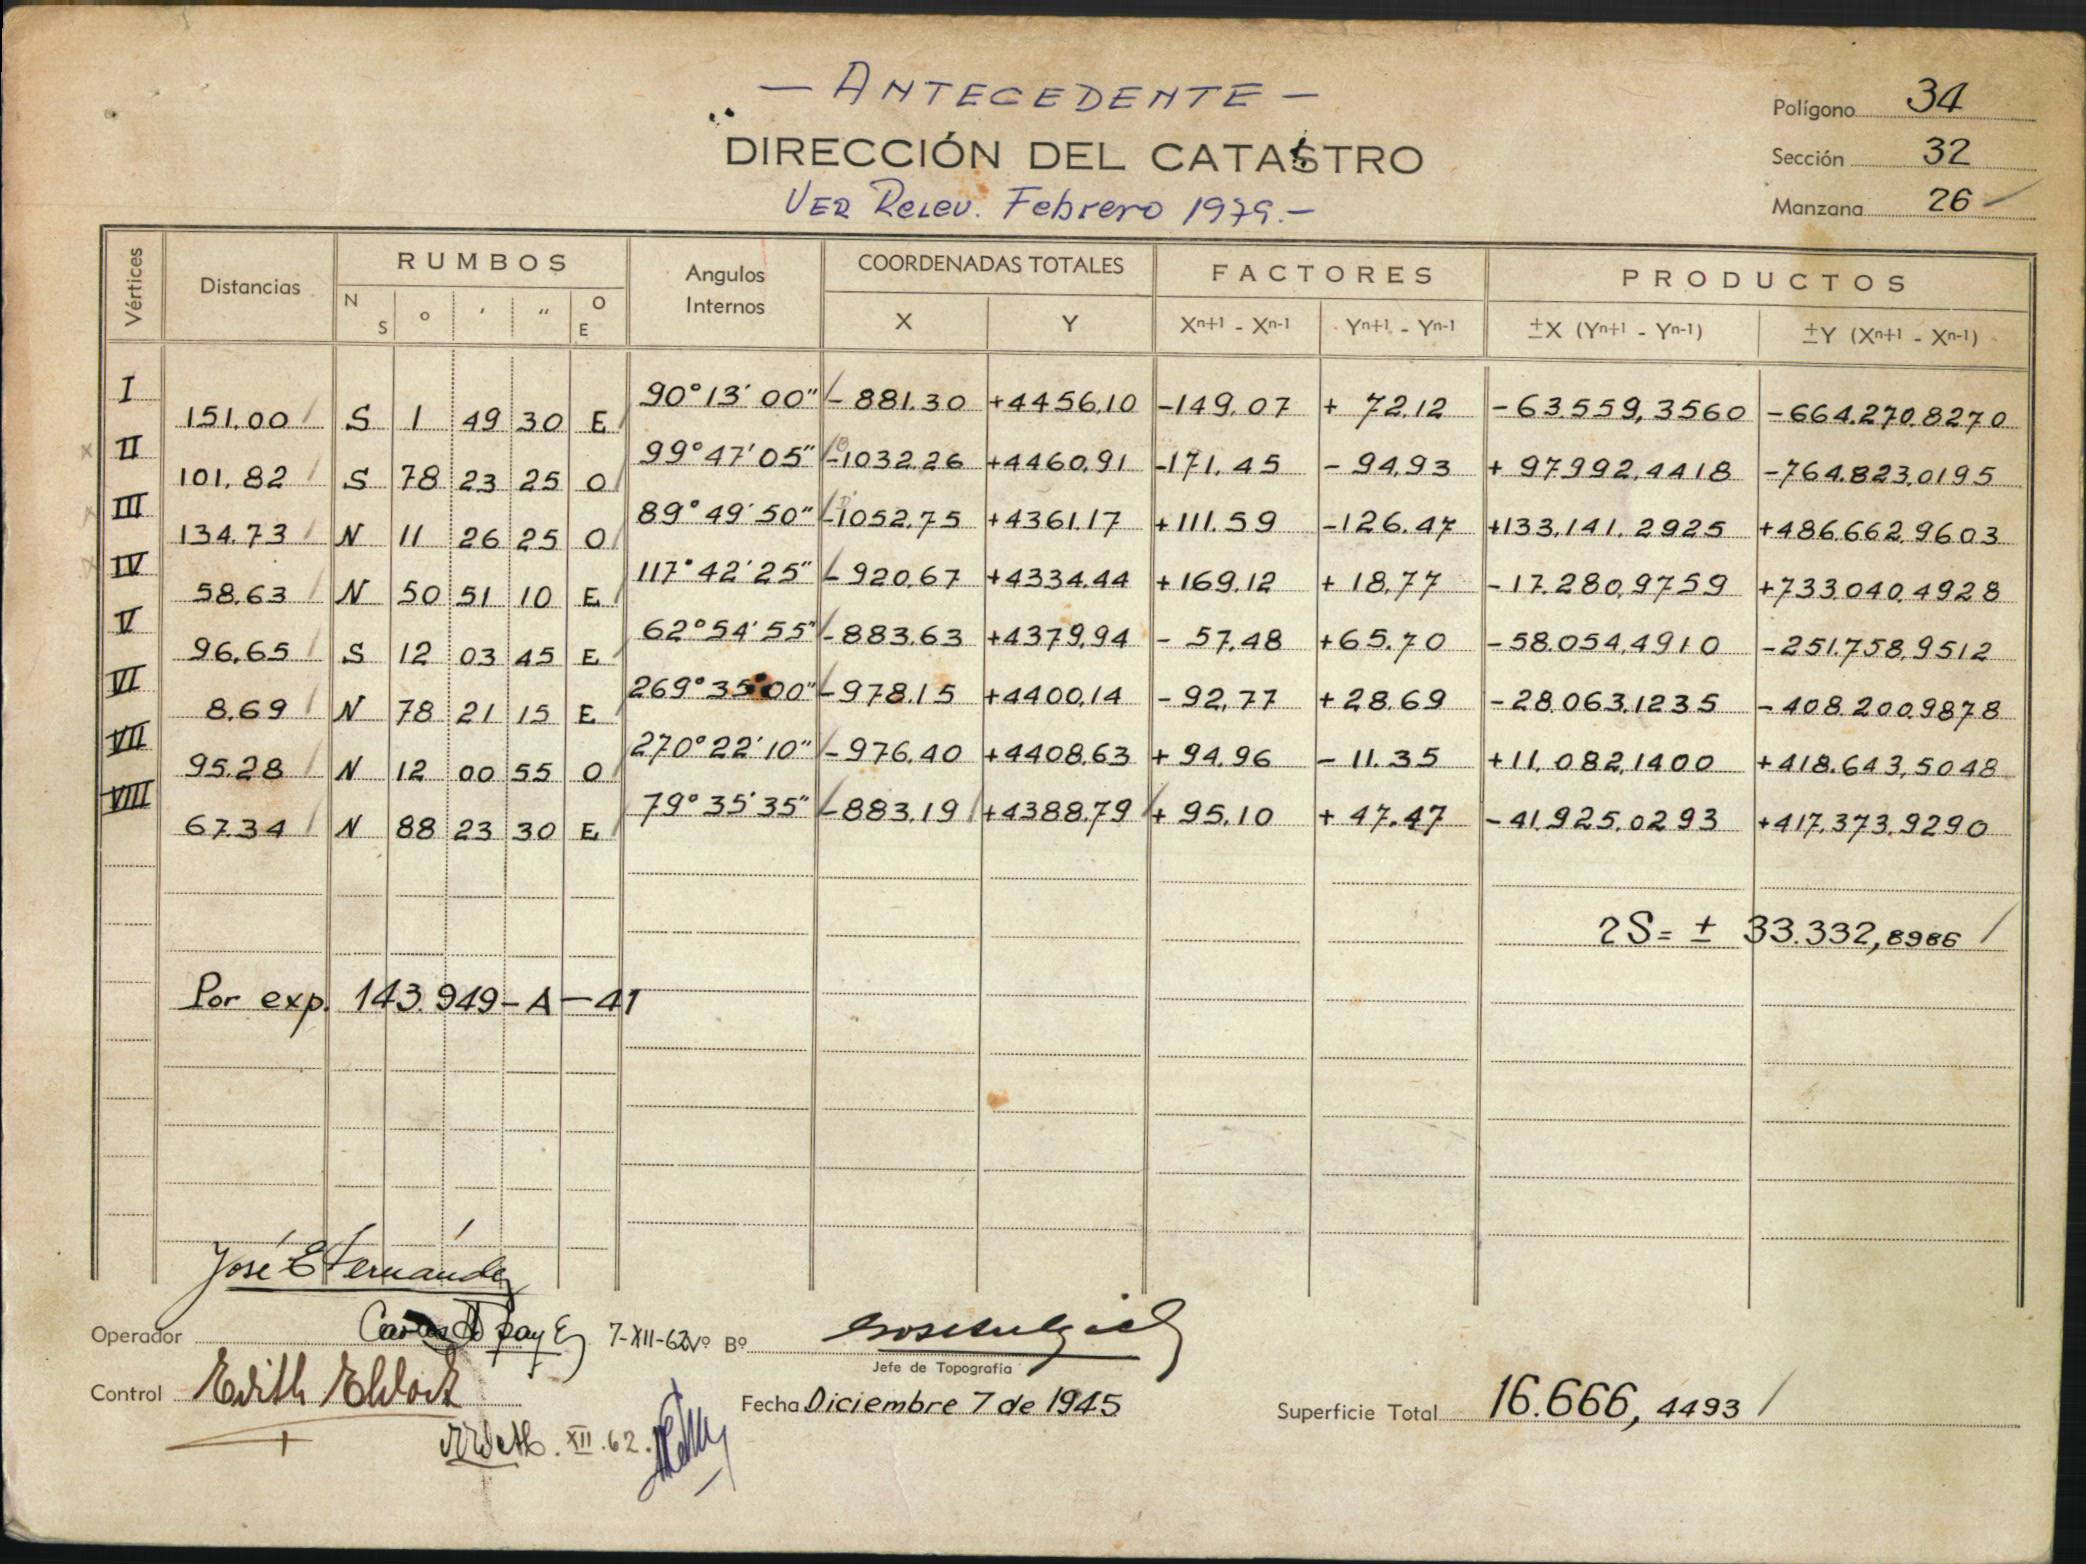 — ANTECEDENTE —
DIRECCIÓN DEL CATASTRO
VER RELEV. Febrero 1979.—
Polígono 34
Sección 32
Manzana 26
Vértices Distancias RUMBOS Angulos Internos COORDENADAS TOTALES FACTORES PRODUCTOS
N S ° ' " O E X Y Xn+1 - Xn-1 Yn+1 - Yn-1 ±X (Yn+1 - Yn-1) ±Y (Xn+1 - Xn-1)
I 90°13'00" -881.30 +4456,10 -149.07 + 72,12 -63559,3560 -664.270,8270
151,00 S 1 49 30 E
II 99°47'05" -1032,26 +4460,91 -171.45 - 94,93 + 97.992,4418 -764.823,0195
101,82 S 78 23 25 O
III 89°49'50" -1052,75 +4361,17 +111.59 -126.47 +133.141,2925 +486.662,9603
134,73 N 11 26 25 O
IV 117°42'25" - 920,67 +4334,44 +169,12 + 18,77 -17.280,9759 +733.040,4928
58,63 N 50 51 10 E
V 62°54'55" -883,63 +4379,94 - 57,48 +65,70 -58.054,4910 -251.758,9512
96,65 S 12 03 45 E
VI 269°35'00" -978,15 +4400,14 - 92,77 +28.69 -28.063,1235 -408.200,9878
8,69 N 78 21 15 E
VII 270°22'10" -976,40 +4408,63 + 94,96 - 11.35 +11.082,1400 +418.643,5048
95,28 N 12 00 55 O
VIII 79°35'35" -883,19 +4388,79 + 95,10 + 47,47 -41.925,0293 +417.373,9290
67,34 N 88 23 30 E
2S = ± 33.332,8986
Por exp. 143.949-A-41
José E Fernández
Operador 7-XII-62 Vº Bº
Jefe de Topografía
Control Edith
Fecha Diciembre 7 de 1945
Superficie Total 16.666,4493
XII.62.